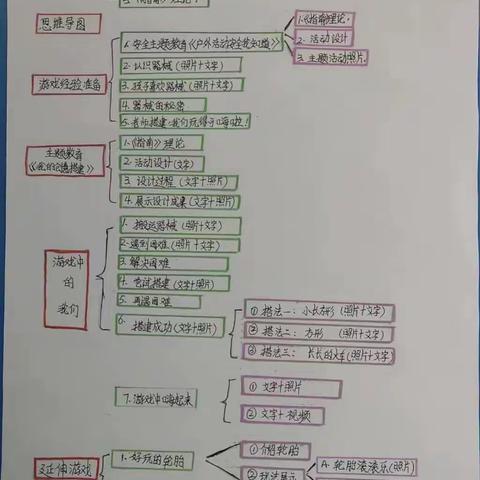 思维导图
1.《指南》理论.
1. 安全主题教育《户外活动安全我知道》
2. 活动设计
3. 主题活动照片.
游戏经验准备
2. 认识器械 (照片+文字)
3. 孩子喜欢器械 (照片+文字)
4. 器械的秘密
5. 老师搭建·我们玩得了嗨啦!
主题教育
1.《指南》理论
2. 活动设计(文字)
3. 设计过程 (文字+照片)
4. 展示设计成果(文字+照片)
游戏中
的
我们
1. 搬运器械 (照片+文字)
2. 遇到困难 (照片+文字)
3. 解决困难
4. 尝试搭建 (文字+照片)
5. 再遇困难
6. 搭建成功(文字+照片)
① 搭法一: 小长方形 (照片+文字)
② 搭法二: 方形 (照片+文字)
③ 搭法三: 长长的火车(照片+文字)
7. 游戏中嗨起来
① 文字+照片
② 文字+视频
延伸游戏
1. 好玩的轮胎
① 介绍轮胎
② 玩法展示
A. 轮胎滚滚乐(照片)